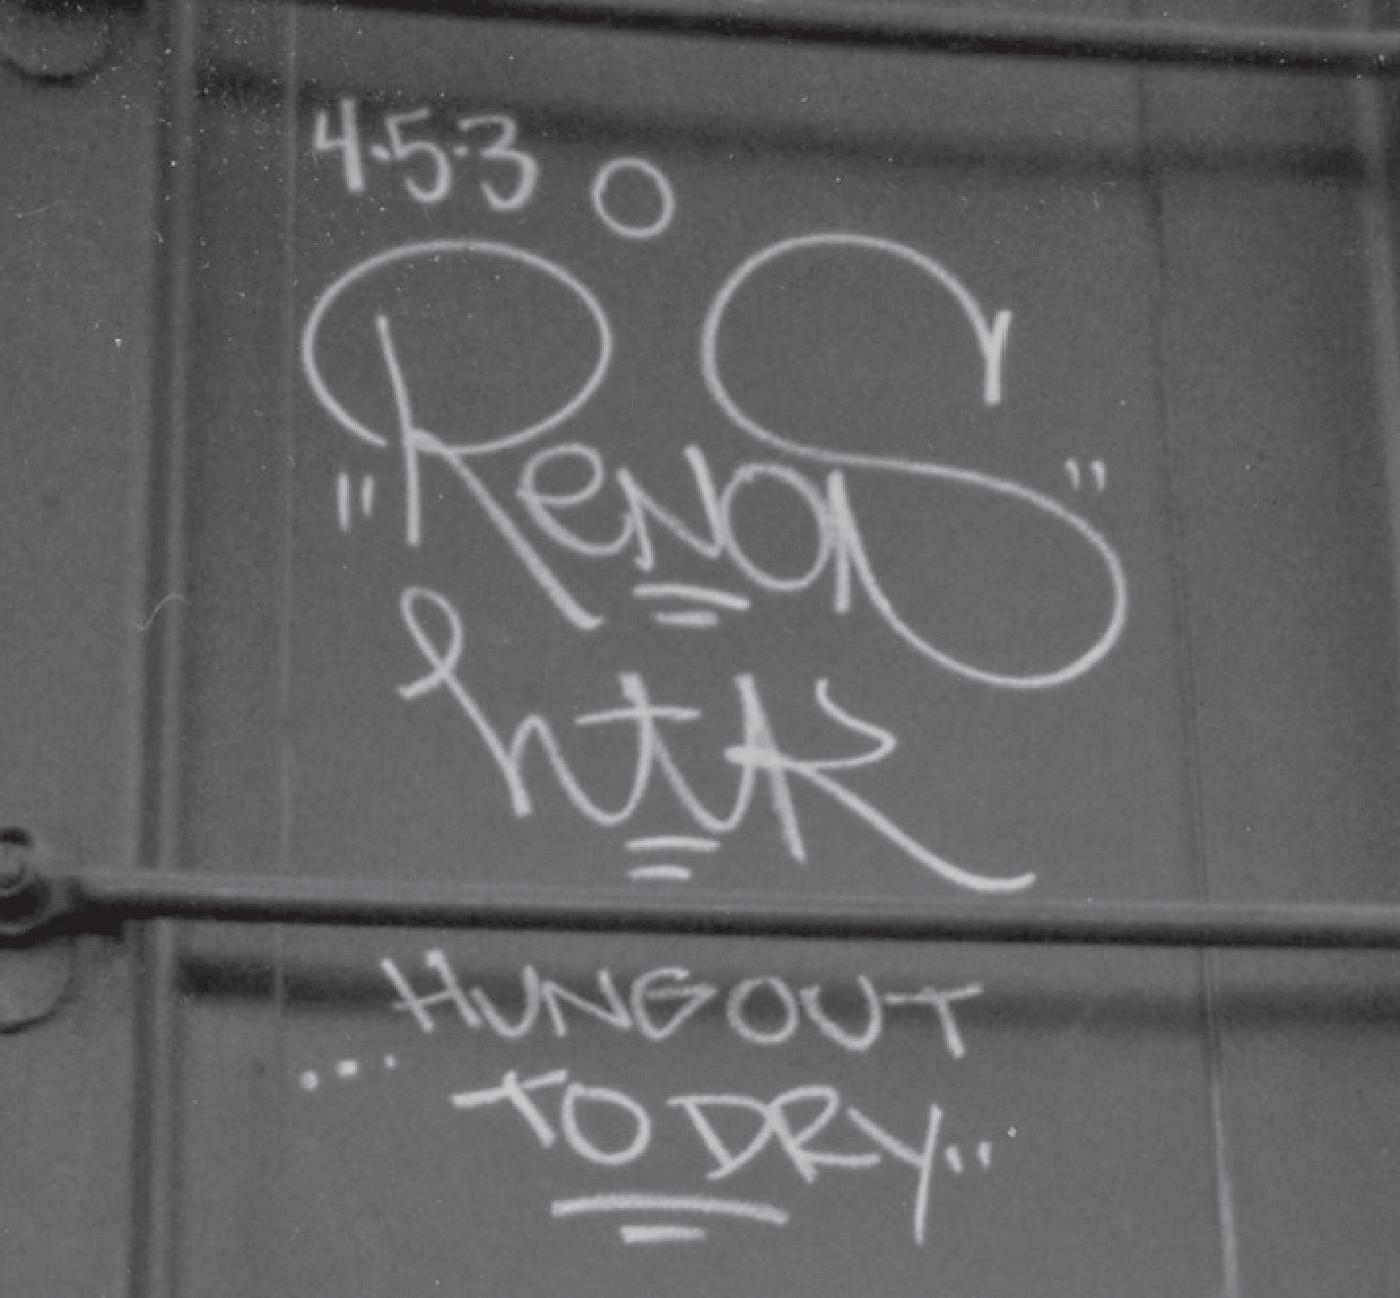 4·5·3
"RENOS"
HTK
...HUNG OUT
TO DRY..